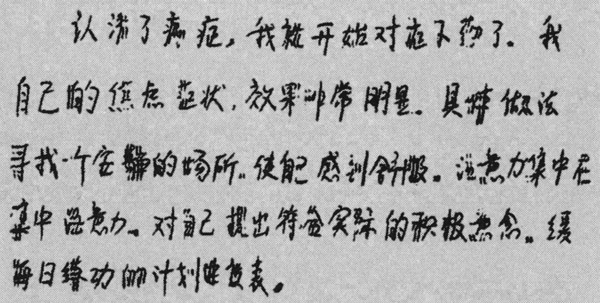 认清了病症，我就开始对症下药了。我
自己的焦虑症状，效果非常明显。具体做法
寻找一个安静的场所。使自己感到舒服。注意力集中在
集中注意力。对自己提出符合实际的积极意念。
每日练功的计划进度表。